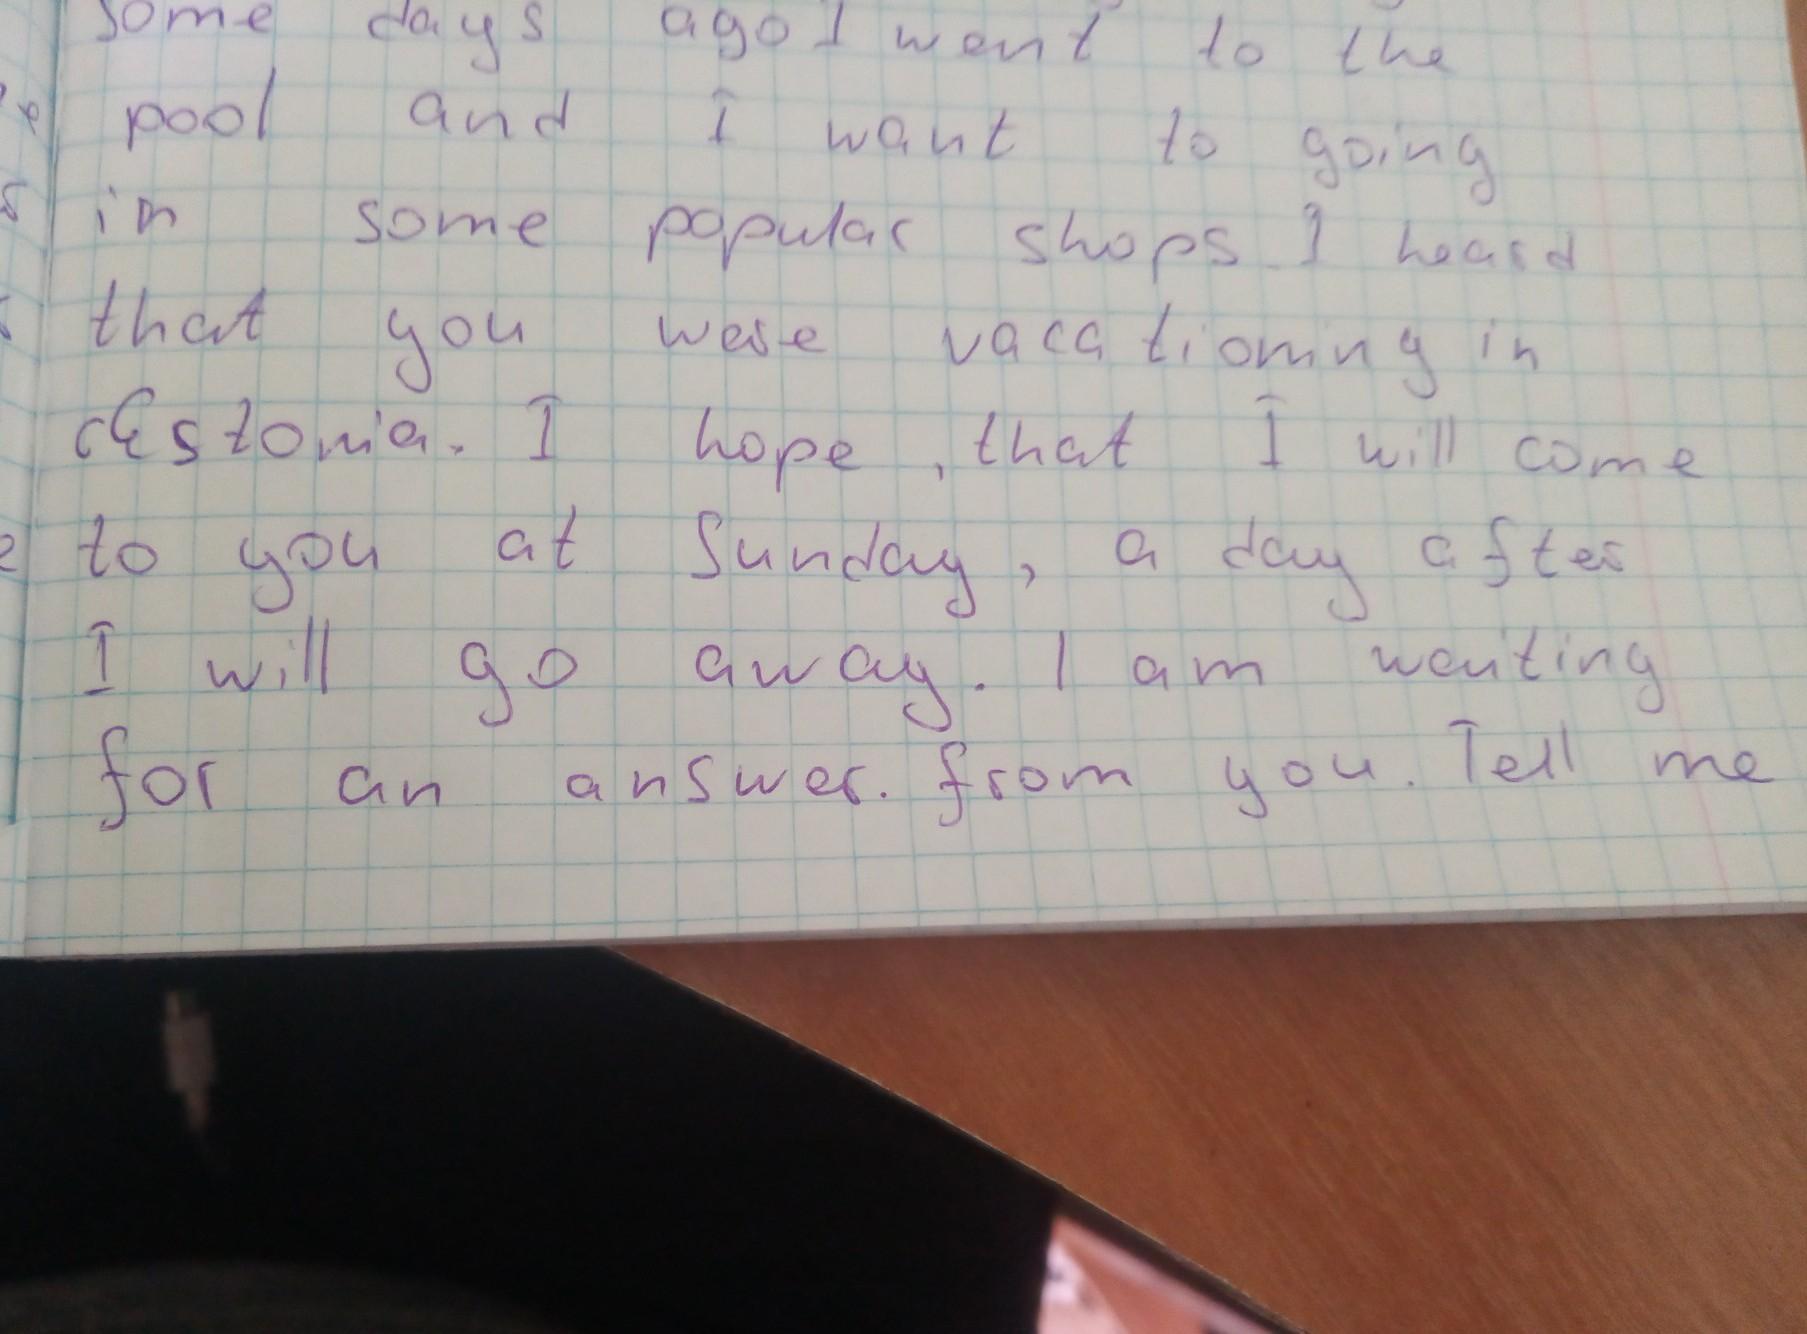 some days ago I went to the
pool and I want to going
in some popular shops. I heard
that you were vacationing in
Estonia. I hope, that I will come
to you at Sunday, a day after
I will go away. I am waiting
for an answer. from you. Tell me